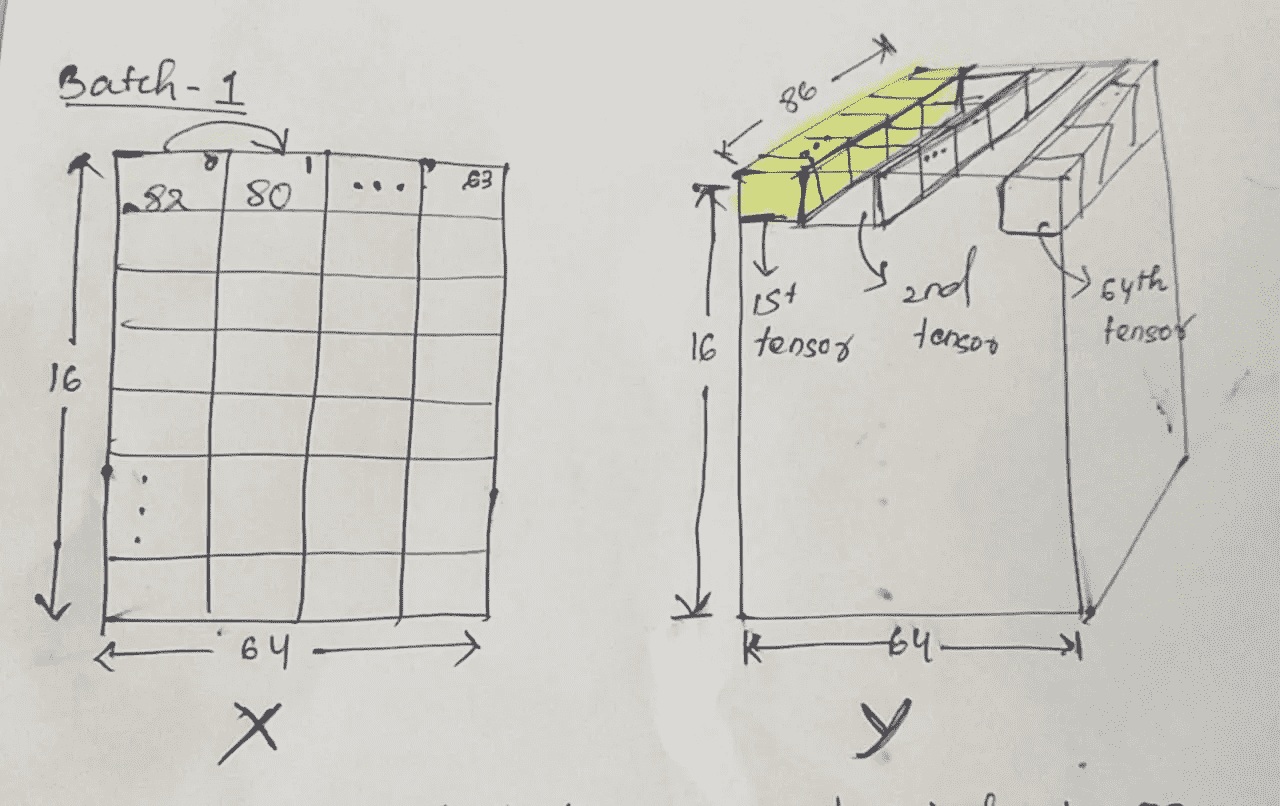 Batch-1
0 1 ... 63
82 80
16
64
X
86
1st
tensor
2nd
tensor
64th
tensor
16
64
y